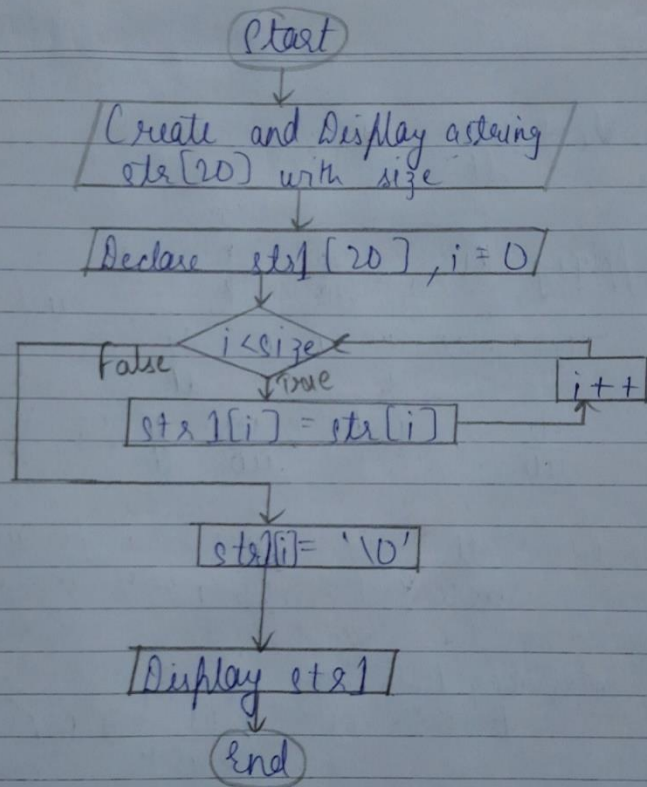 Start
Create and Display a string
str[20] with size
Declare str1[20], i = 0
i < size
False
True
i++
str1[i] = str[i]
str1[i] = '\0'
Display str1
End